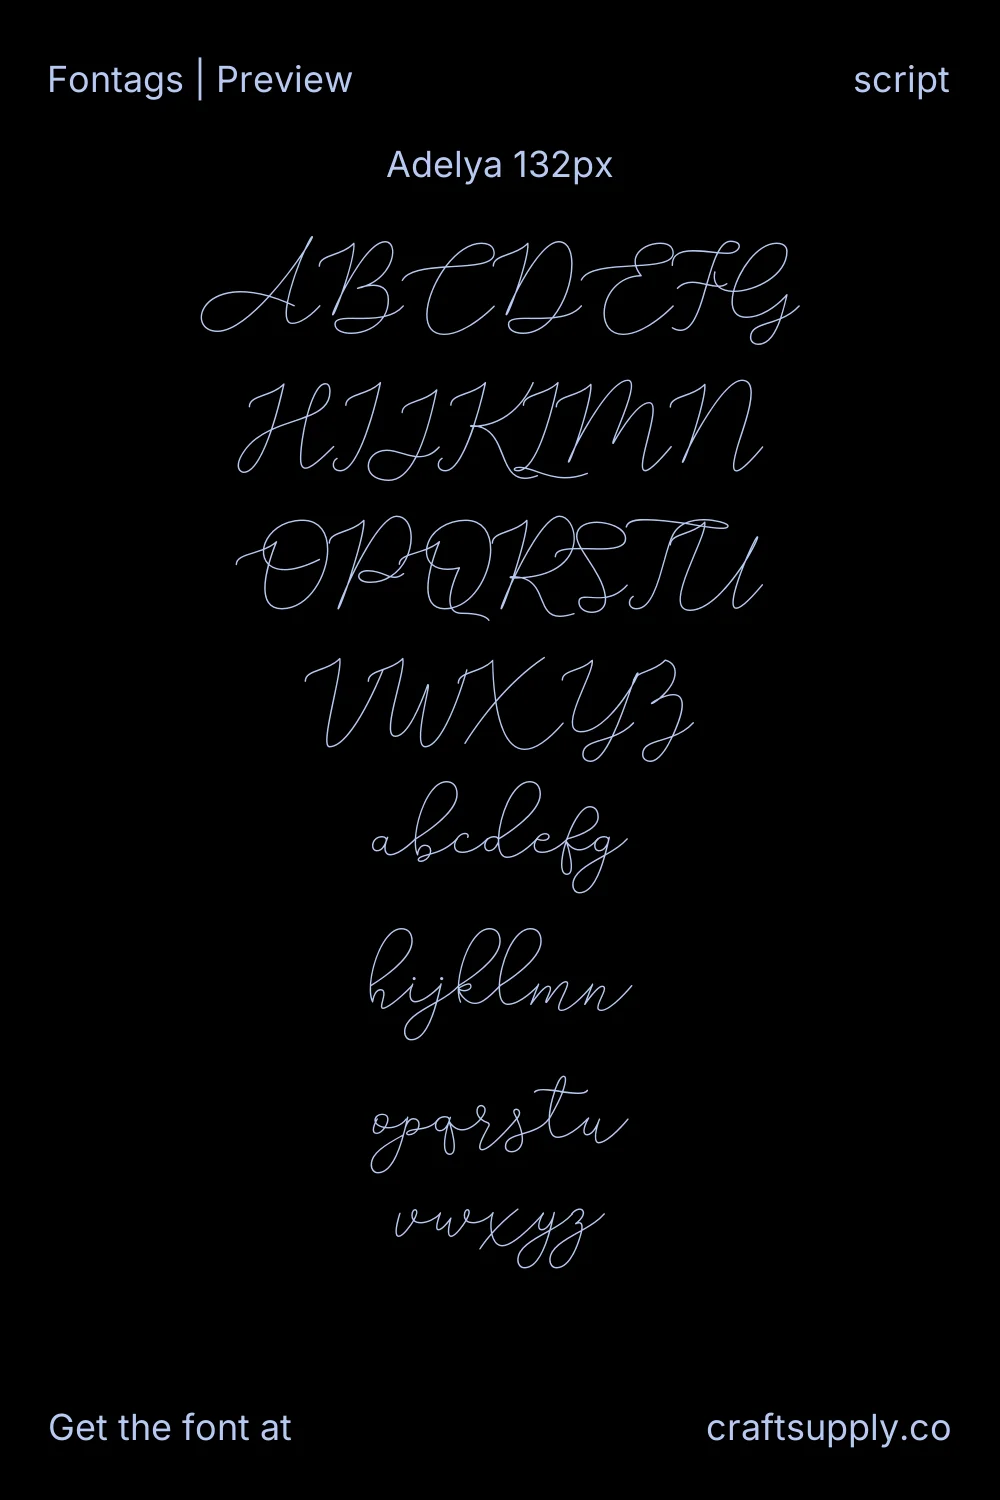 Fontags | Preview
script
Adelya 132px
ABCDEFG
HIJKLMN
OPQRSTU
VWXYZ
abcdefg
hijklmn
opqrstu
vwxyz
Get the font at
craftsupply.co